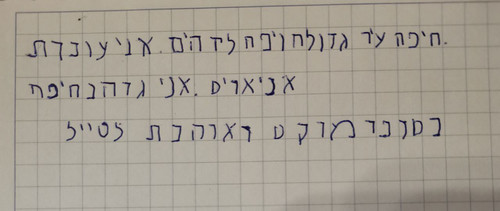 חיפה עיר גדולה ויפה ליד הים. אני עובדת
אני ארים. אני גרה בחיפה
בסופר מרקט ואוהבת לטייל